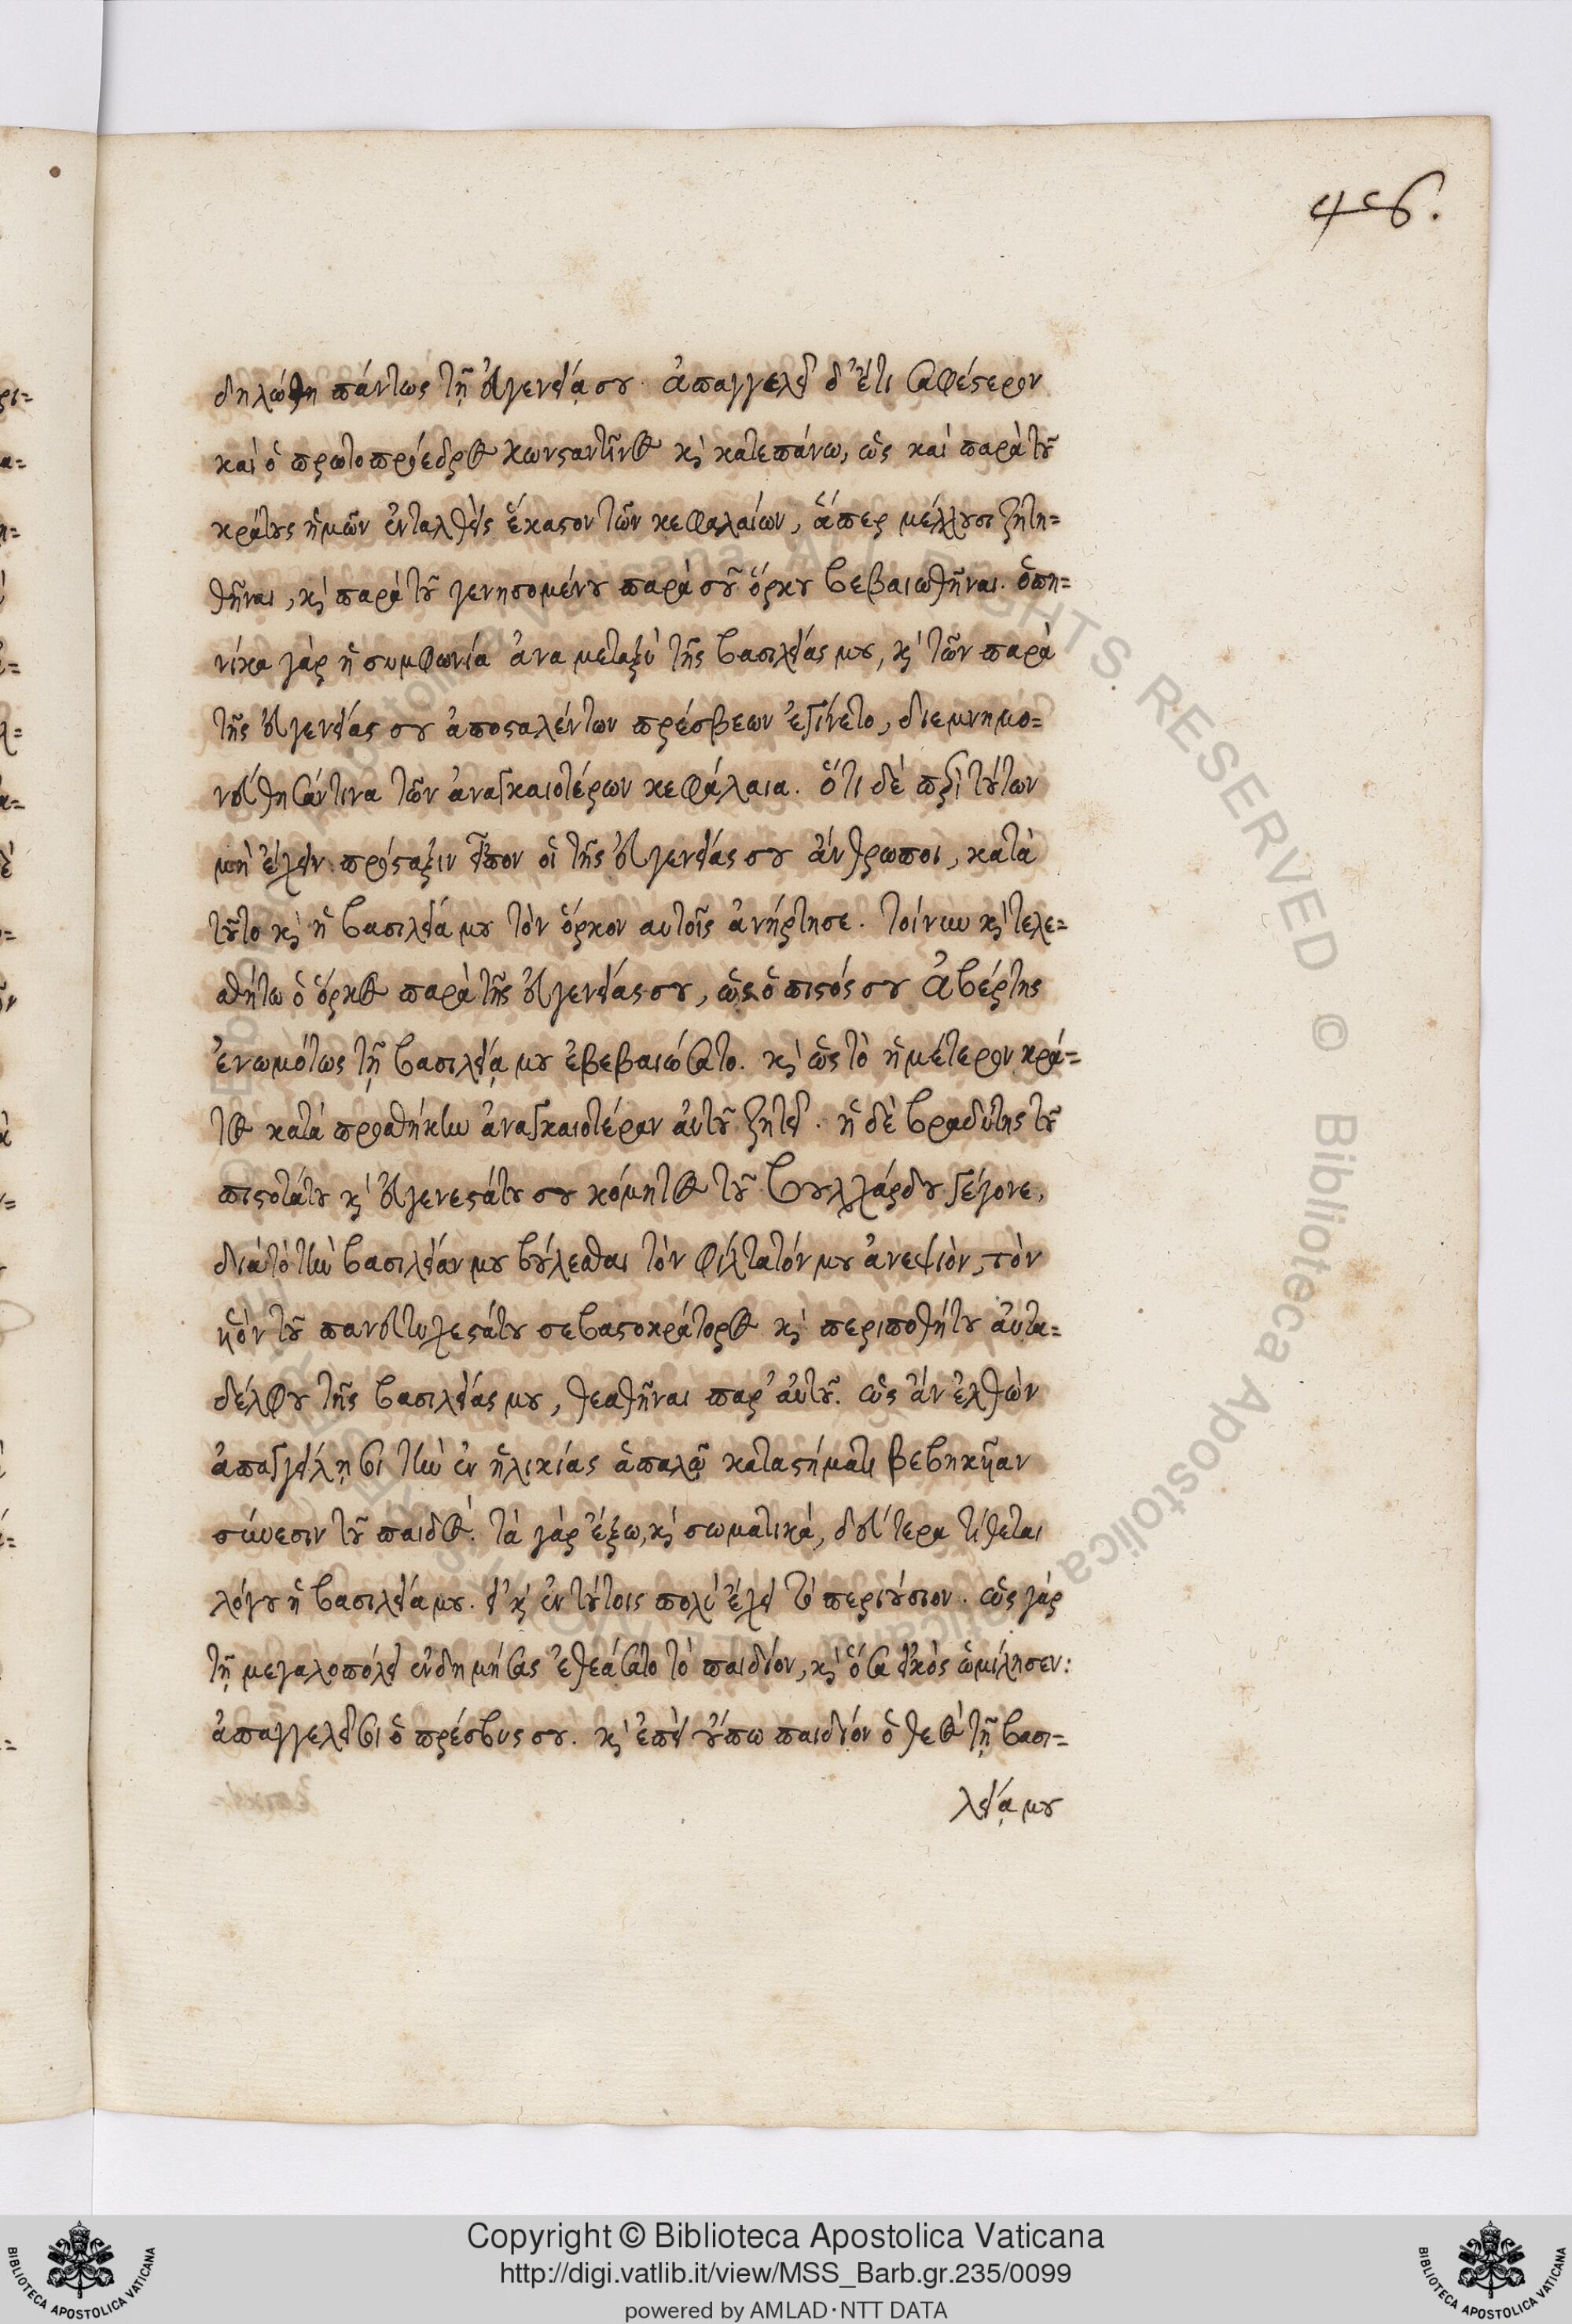 46.
δηλώθη πάντως τῇ εὐγενείᾳ σου. ἀπαγγελεῖ δ' ἔτι σαφέστερον
καὶ ὁ πρωτοπρόεδρος Κωνσταντῖνος καὶ κατεπάνω, ὡς καὶ παρὰ τοῦ
κράτους ἡμῶν ἐνταλθεὶς ἕκαστον τῶν κεφαλαίων, ἅπερ μέλλουσι ζητη=
θῆναι, καὶ παρὰ τοῦ γενησομένου παρὰ σοῦ ὅρκου βεβαιωθῆναι. ὁπη=
νίκα γὰρ ἡ συμφωνία ἀνα μεταξὺ τῆς βασιλείας μου, καὶ τῶν παρὰ
τῆς εὐγενείας σου ἀποσταλέντων πρέσβεων ἐγίνετο, διεμνημο=
νεύθησάν τινα τῶν ἀναγκαιοτέρων κεφάλαια. ὅτι δὲ περὶ τούτων
μὴ ἔχειν πρόσταξιν εἶπον οἱ τῆς εὐγενείας σου ἄνθρωποι, κατὰ
τοῦτο καὶ ἡ βασιλεία μου τὸν ὅρκον αυτοῖς ἀνήρτησε. τοίνυν καὶ τελε=
σθήτω ὁ ὅρκος παρὰ τῆς εὐγενείας σου, ὡς ὁ πιστός σου Ἀβέρτης
ἐνωμότως τῇ βασιλείᾳ μου ἐβεβαιώσατο. καὶ ὡς τὸ ἡμέτερον κρά=
τος κατὰ προσθήκην ἀναγκαιοτέραν αὐτοῦ ζητεῖ. ἡ δὲ βραδύτης τοῦ
πιστοτάτου καὶ εὐγενεστάτου σου κόμητος τοῦ Βουλχάρδου γέγονε,
διὰ τὸ τὴν βασιλείαν μου βούλεσθαι τὸν φίλτατόν μου ἀνεψιὸν, τὸν
υἱὸν τοῦ πανευτυχεστάτου σεβαστοκράτορος καὶ περιποθήτου αὐτα=
δέλφου τῆς βασιλείας μου, θεαθῆναι παρ' αὐτοῦ. ὡς ἂν ἐλθὼν
ἀπαγγείλῃ σι τὴν ἐν ἡλικίας ἁπαλῷ καταστήματι βεβηκυῖαν
σύνεσιν τοῦ παιδός. τὰ γὰρ ἔξω, καὶ σωματικά, δεύτερα τίθεται
λόγου ἡ βασιλεία μου. εἰ καὶ ἐν τούτοις πολὺ ἔχει τὸ περιούσιον. ὡς γὰρ
τῇ μεγαλοπόλει ἐνδημήσας ἐθεάσατο τὸ παιδίον, καὶ ὅσα εἰκὸς ὡμίλησεν:
ἀπαγγελεῖ σι ὁ πρέσβυς σου. καὶ ἐπεὶ οὔπω παιδίον ὁ θεὸς τῇ βασι=
λείᾳ μου